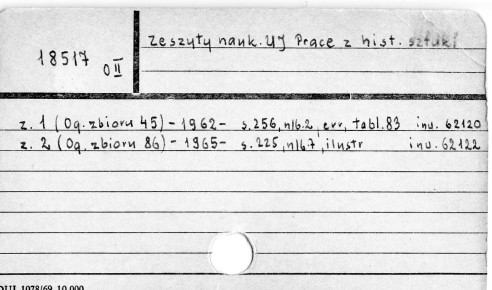 18517
O II
Zeszyty nauk. UJ Prace z hist. sztuki
z. 1 (Og. zbioru 45) - 1962 - s. 256, nlb. 2, err, tabl. 83 inv. 62120
z. 2 (Og. zbioru 86) - 1965 - s. 225, nlb. 7, ilustr inv. 62122
DUJ. 1078/69. 10.000